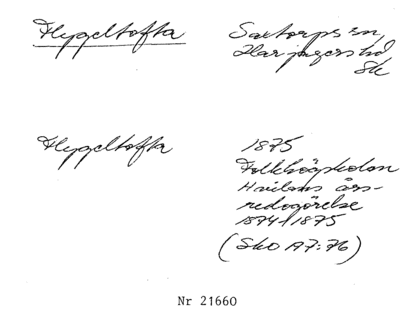 Flygeltofta
Saxtorps sn,
Harjagers hd
Sk
Flygeltofta
1875
Folkhögskolan
Hvilans års-
redogörelse
1874-1875
(Sko A7:76)
Nr 21660